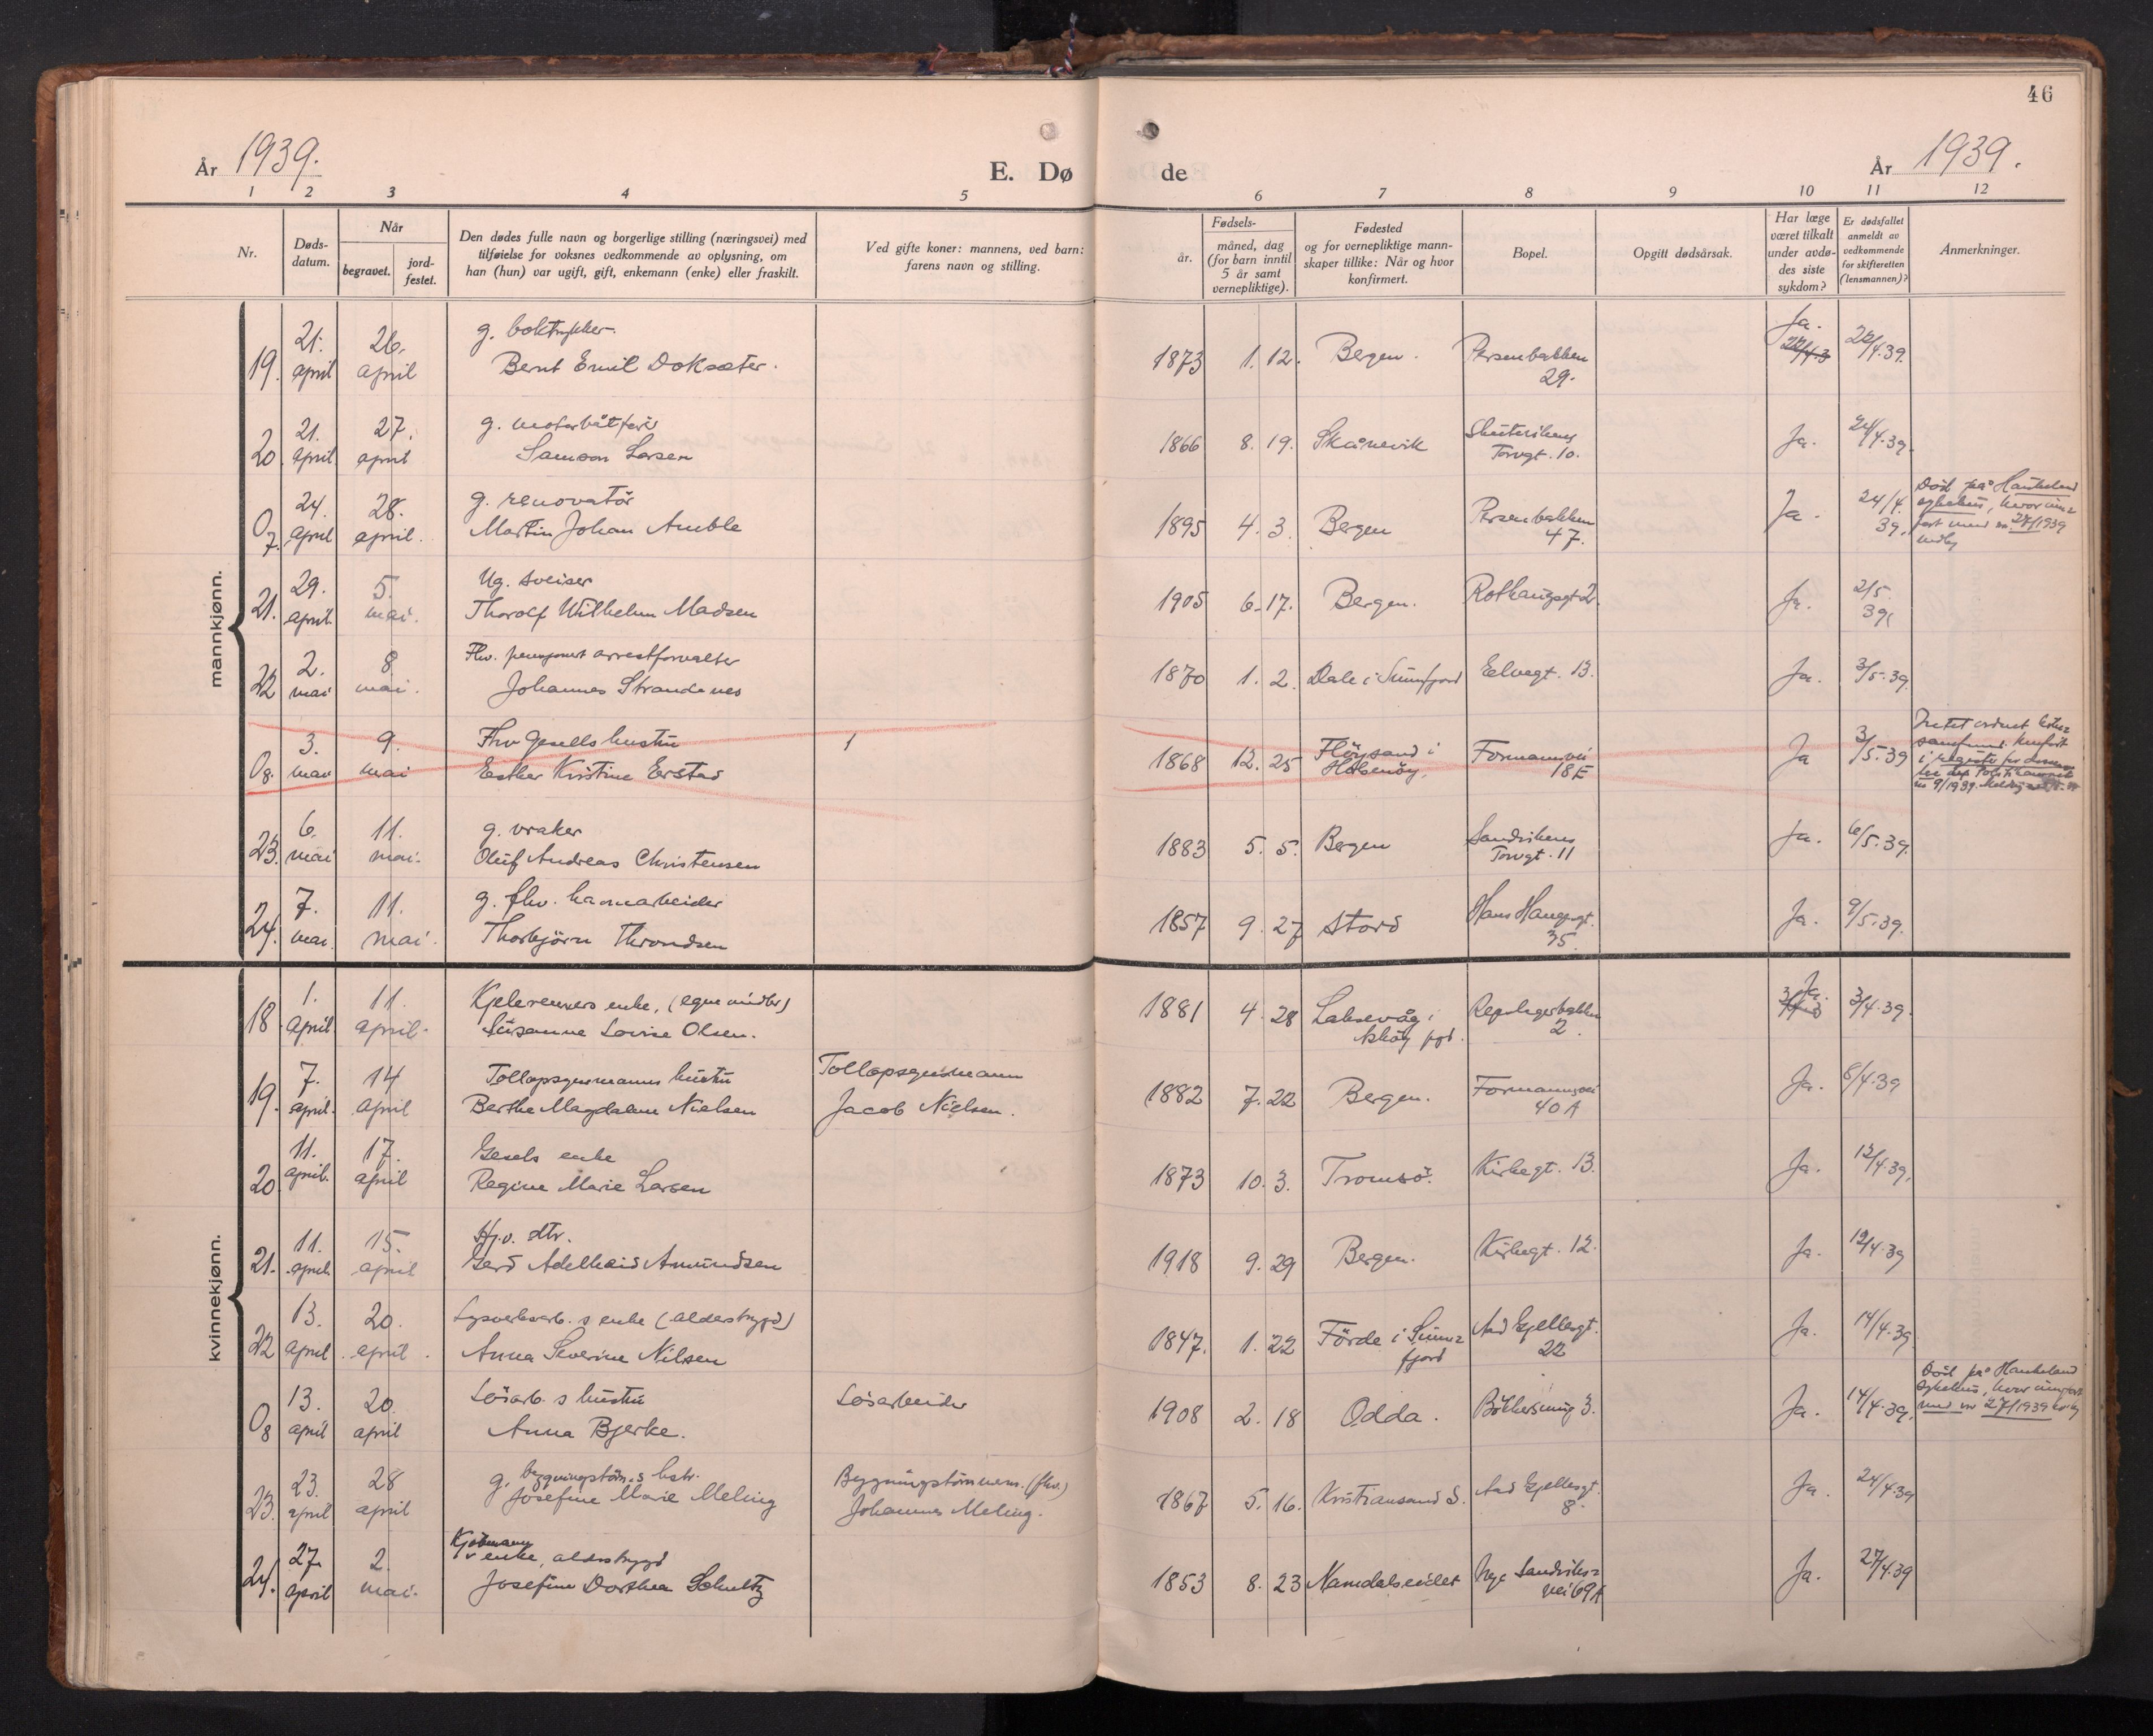 46
År 1939.
E. Dø de
År 1939.
1 2 3 4 5 6 7 8 9 10 11 12
Nr.
Døds-
datum.
Når
begravet.
jord-
festet.
Den dødes fulle navn og borgerlige stilling (næringsvei) med
tilføielse for voksnes vedkommende av oplysning, om
han (hun) var ugift, gift, enkemann (enke) eller fraskilt.
Ved gifte koner: mannens, ved barn:
farens navn og stilling.
Fødsels-
år.
måned, dag
(for barn inntil
5 år samt
vernepliktige).
Fødested
og for vernepliktige mann-
skaper tillike: Når og hvor
konfirmert.
Bopel.
Opgitt dødsårsak.
Har læge
været tilkalt
under avdø-
des siste
sykdom?
Er dødsfallet
anmeldt av
vedkommende
for skifteretten
(lensmannen)?
Anmerkninger.
mannkjønn.
19. 21. april 26. april g. boktrykker
Bernt Emil Doksæter. 1873 1. 12. Bergen. Persenbakken
29. Ja. 22/4.39.
20. 21. april 27. april g. motorbåtfører
Samson Larsen 1866 8. 19. Skånevik
Torvgt. 10. Ja. 24/4.39.
0 7. 24. april 28. april. g. renovatör
Martin Johan Amble 1895 4. 3. Bergen Persenbakken
47. Ja. 24/4.
39.
Död på Haukeland
sykehus, hvor innz
ført med nr. 27/1939
21. 29. april 5. mai. Ug. sveiser
Thorolf Wilhelm Madsen 1905 6. 17. Bergen. Rothaugsgt 2. Ja. 2/5.
39.
22 2. mai 8 mai. Fhv. pensjonert arrestforvalter
Johannes Strandenes 1870 1. 2. Dale i Sunnfjord 13. Ja. 3/5.39.
08. 3. mai 9. mai Fhv Gesells hustru
Esther Kristine Erstad 1868 12. 25 Flögsand i
Holsenöy. Formannsvei
18E Ja 3/5.39
23. 6. mai 11. mai. g. vraker
Oluf Andreas Christensen 1883 5. 5. Bergen Sandvikens
Torvgt. 11 Ja. 6/5.39.
24. 7. mai. 11. mai. g. fhv. havnearbeider
Thorbjörn Throndsen 1857 9. 27 Stord Hans Haugesgt.
35. Ja. 9/5.39.
kvinnekjønn.
18. 1. april 11. april. Kjelerensers enke, (egne midler)
Susanne Lovise Olsen. 1881 4. 28 Laksevåg i
Askøy pgd. Repslagerbakken
2. Ja. 3/4.39.
19. 7. april. 14 april Tollopsynsmanns hustru Tollopsynsmann
Berthe Magdalene Nielsen Jacob Nielsen. 1882 7. 22 Bergen. Formannsvei
40 A Ja. 8/4.39
20 11. april. 17. april Gesels enke
Regine Marie Larsen 1873 10. 3. Tromsö. Kirkegt. 13. Ja. 12/4.39.
21. 11. april 15. april Hj.v. dtr.
Gerd Adelheid Amundsen 1918 9. 29 Bergen. Kirkegt. 12. Ja. 12/4.39
22 13. april 20. april. Lysverksarb.s enke (alderstrygd)
Anna Severine Nilsen 1847. 1. 22 Förde i Sunnz
fjord And Gjellesgt.
22 Ja. 14/4.39
08 13. april 20. april Lösarb.s hustru Lösarbeider
Anna Bjerke. 1908 2. 18 Odda. Bökkersmug 3. Ja. 14/4.39.
Död på Haukeland
sykehus, hvor innført
med nr 27/1939
23. 23. april 28 april g. bygningstöm.s hstr. Bygningstömmerm. (fhv.)
Josefine Marie Meling Johannes Meling. 1867 5. 16. Kristiansand S. And Gjellesgt.
8. Ja. 24/4.39
24. 27. april 2. mai. Kjøbmann
s enke, alderstrygd
Josefine Dorthea Schultz 1853 8. 23 Namdalseidet Nye Sandviksz
vei 69A Ja. 27/4.39